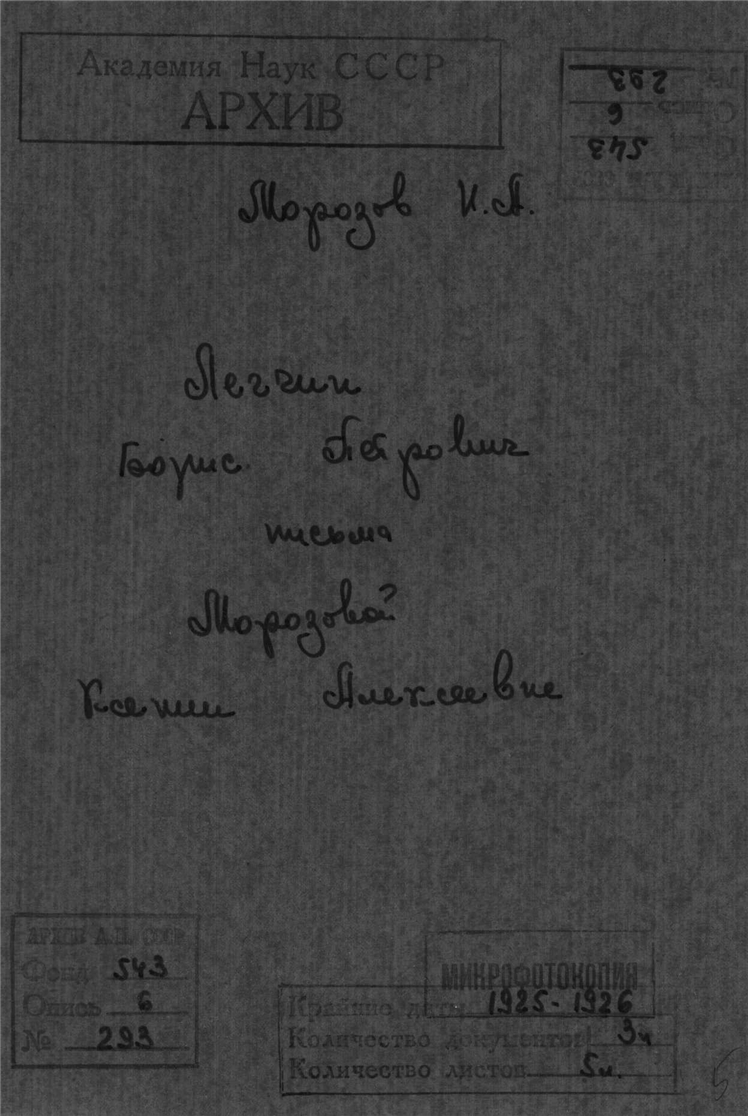 Академия Наук СССР
АРХИВ
293
6
543
Морозов Н.А.
Легчин
Борис Петрович
письма
Морозовой
Ксении Алексеевне
АРХИВ А.Н. СССР
Фонд 543
Опись 6
№ 293
МИКРОФОТОКОПИЯ
Крайние даты 1925-1926
Количество документов 3ч
Количество листов 5л.